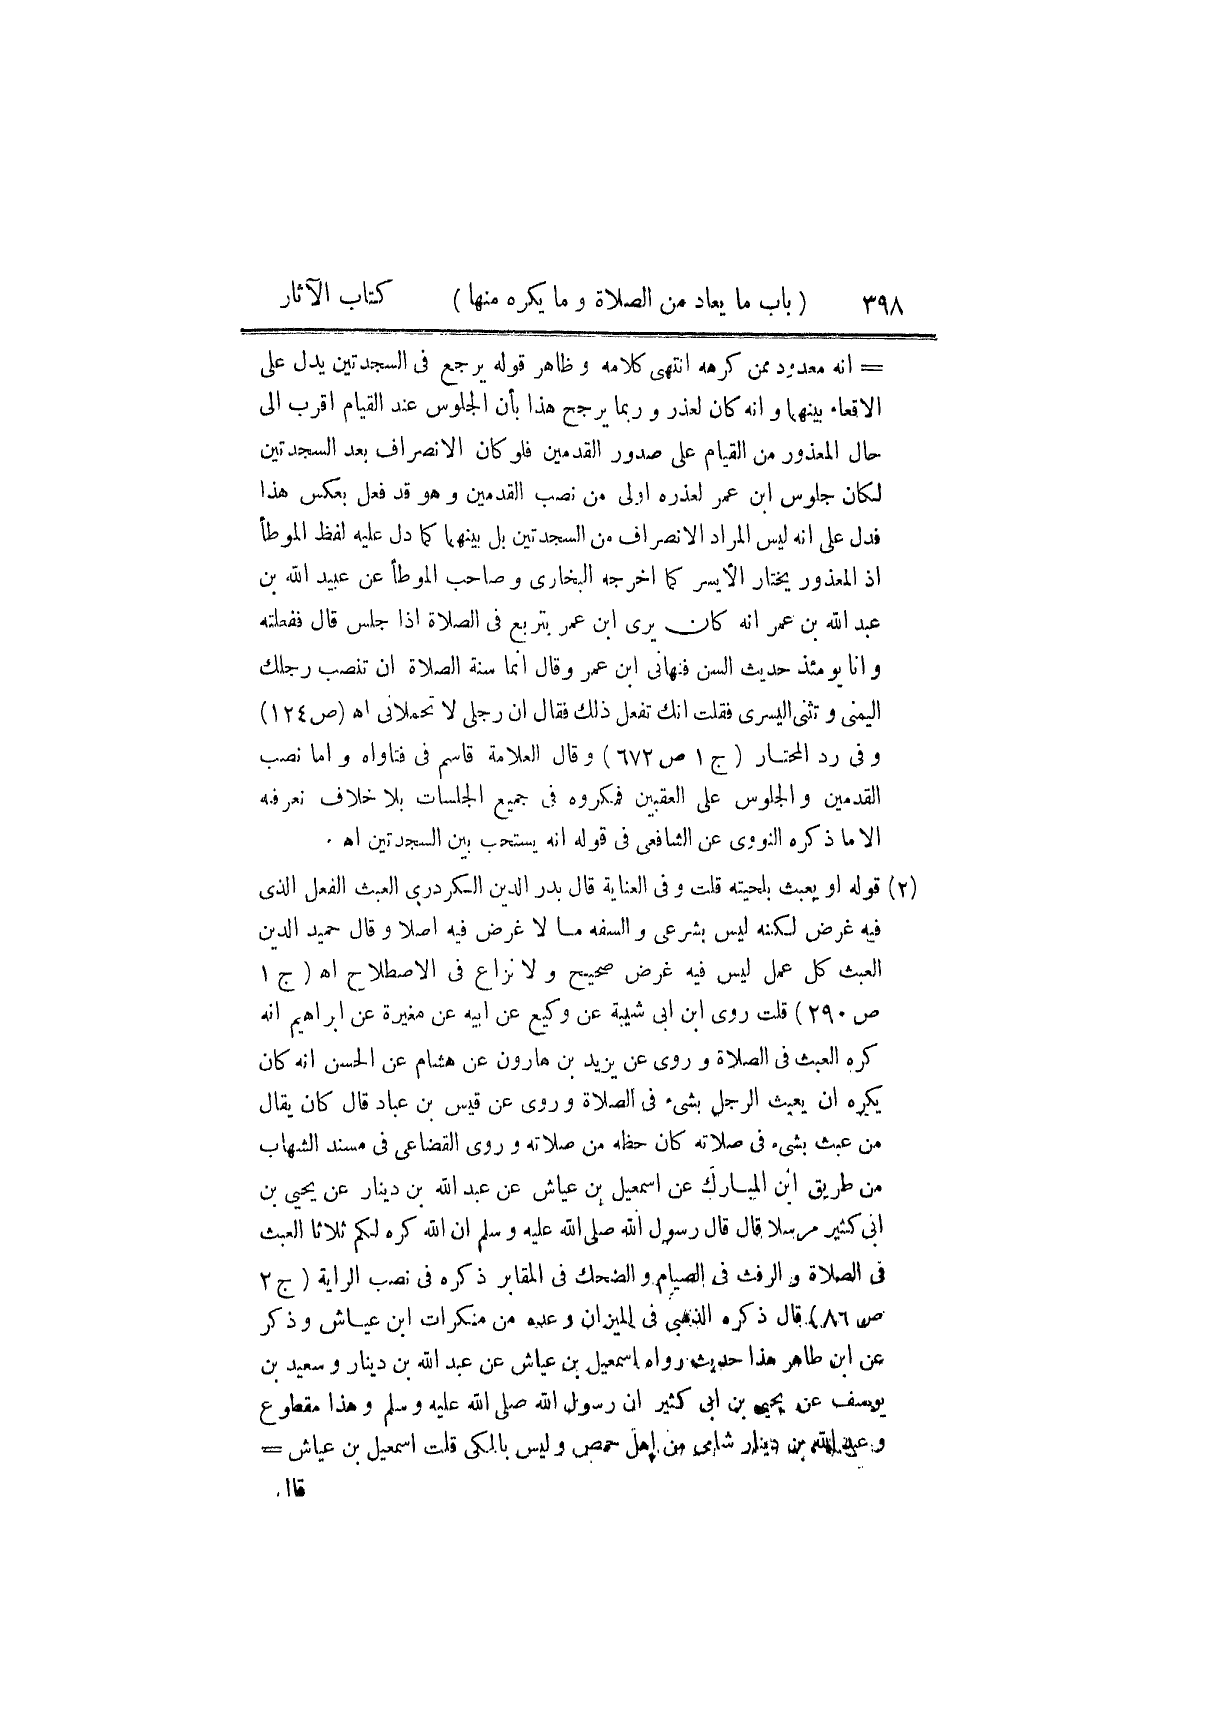 ٣٩٨ ( باب ما يعاد من الصلاة و ما يكره منها ) كتاب الآثار
= انه معدود ممن كرهه انتهى كلامه و ظاهر قوله يرجع فى السجدتين يدل على
الاقعاء بينهما و انه كان لعذر و ربما يرجح هذا بأن الجلوس عند القيام اقرب الى
حال المعذور من القيام على صدور القدمين فلو كان الانصراف بعد السجدتين
لكان جلوس ابن عمر لعذره اولى من نصب القدمين و هو قد فعل بعكس هذا
فدل على انه ليس المراد الانصراف من السجدتين بل بينهما كما دل عليه لفظ الموطأ
اذ المعذور يختار الأيسر كما اخرجه البخارى و صاحب الموطأ عن عبيد الله بن
عبد الله بن عمر انه كان يرى ابن عمر يتربع فى الصلاة اذا جلس قال ففعلته
و انا يومئذ حديث السن فنهانى ابن عمر وقال انما سنة الصلاة ان تنصب رجلك
اليمنى و تثنى اليسرى فقلت انك تفعل ذلك فقال ان رجلى لا تحملانى اه (ص ١٢٤)
و فى رد المحتار ( ج ١ ص ٦٧٢ ) و قال العلامة قاسم فى فتاواه و اما نصب
القدمين و الجلوس على العقبين فمكروه فى جميع الجلسات بلا خلاف نعرفه
الا ما ذكره النووى عن الشافعى فى قوله انه يستحب بين السجدتين اه .
(٢) قوله او يعبث بلحيته قلت و فى العناية قال بدر الدين الكردرى العبث الفعل الذى
فيه غرض لكنه ليس بشرعى و السفه ما لا غرض فيه اصلا و قال حميد الدين
العبث كل عمل ليس فيه غرض صحيح و لا نزاع فى الاصطلاح اه ( ج ١
ص ٢٩٠ ) قلت روى ابن ابى شيبة عن وكيع عن ابيه عن مغيرة عن ابراهيم انه
كره العبث فى الصلاة و روى عن يزيد بن هارون عن هشام عن الحسن انه كان
يكره ان يعبث الرجل بشىء فى الصلاة و روى عن قيس بن عباد قال كان يقال
من عبث بشىء فى صلاته كان حظه من صلاته و روى القضاعى فى مسند الشهاب
من طريق ابن المبارك عن اسمعيل بن عياش عن عبد الله بن دينار عن يحيى بن
ابى كثير مرسلا قال قال رسول الله صلى الله عليه و سلم ان الله كره لكم ثلاثا العبث
فى الصلاة و الرفث فى الصيام و الضحك فى المقابر ذكره فى نصب الراية ( ج ٢
ص ٨٦ ) قال ذكره الذهبى فى الميزان و عده من منكرات ابن عياش و ذكر
عن ابن طاهر هذا حديث رواه اسمعيل بن عياش عن عبد الله بن دينار و سعيد بن
يوسف عن يحيى بن ابى كثير ان رسول الله صلى الله عليه و سلم و هذا مقطوع
و عبد الله بن دينار شامى من اهل حمص و ليس بالمكى قلت اسمعيل بن عياش =
قال